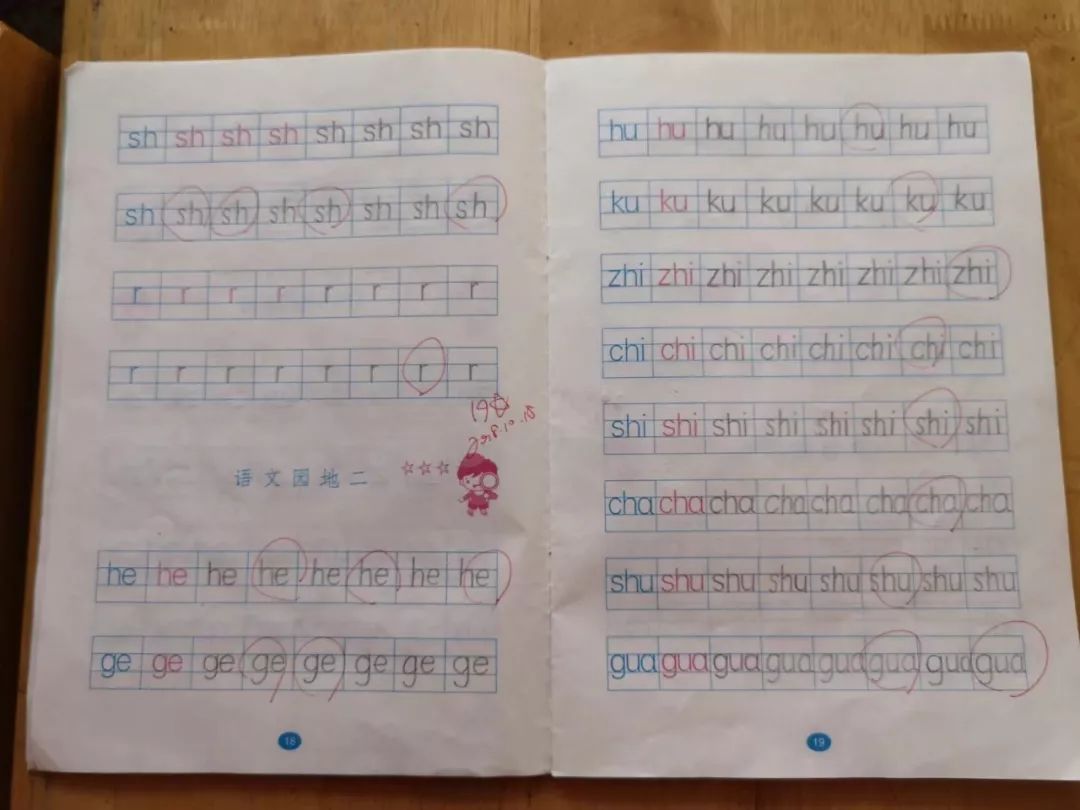 sh sh sh sh sh sh sh sh
sh sh sh sh sh sh sh sh
r r r r r r r r
r r r r r r r r
19
2018.10.18
语文园地二
he he he he he he he he
ge ge ge ge ge ge ge ge
18
hu hu hu hu hu hu hu hu
ku ku ku ku ku ku ku ku
zhi zhi zhi zhi zhi zhi zhi zhi
chi chi chi chi chi chi chi chi
shi shi shi shi shi shi shi shi
cha cha cha cha cha cha cha cha
shu shu shu shu shu shu shu shu
gua gua gua gua gua gua gua gua
19